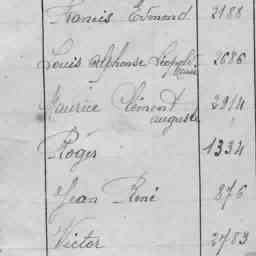 Francis Edmond. 2188
Louis Alphonse Léopold 2686
Marie
Maurice Clément 2914
auguste
Roger 1334
Jean René 876
Victor 2783